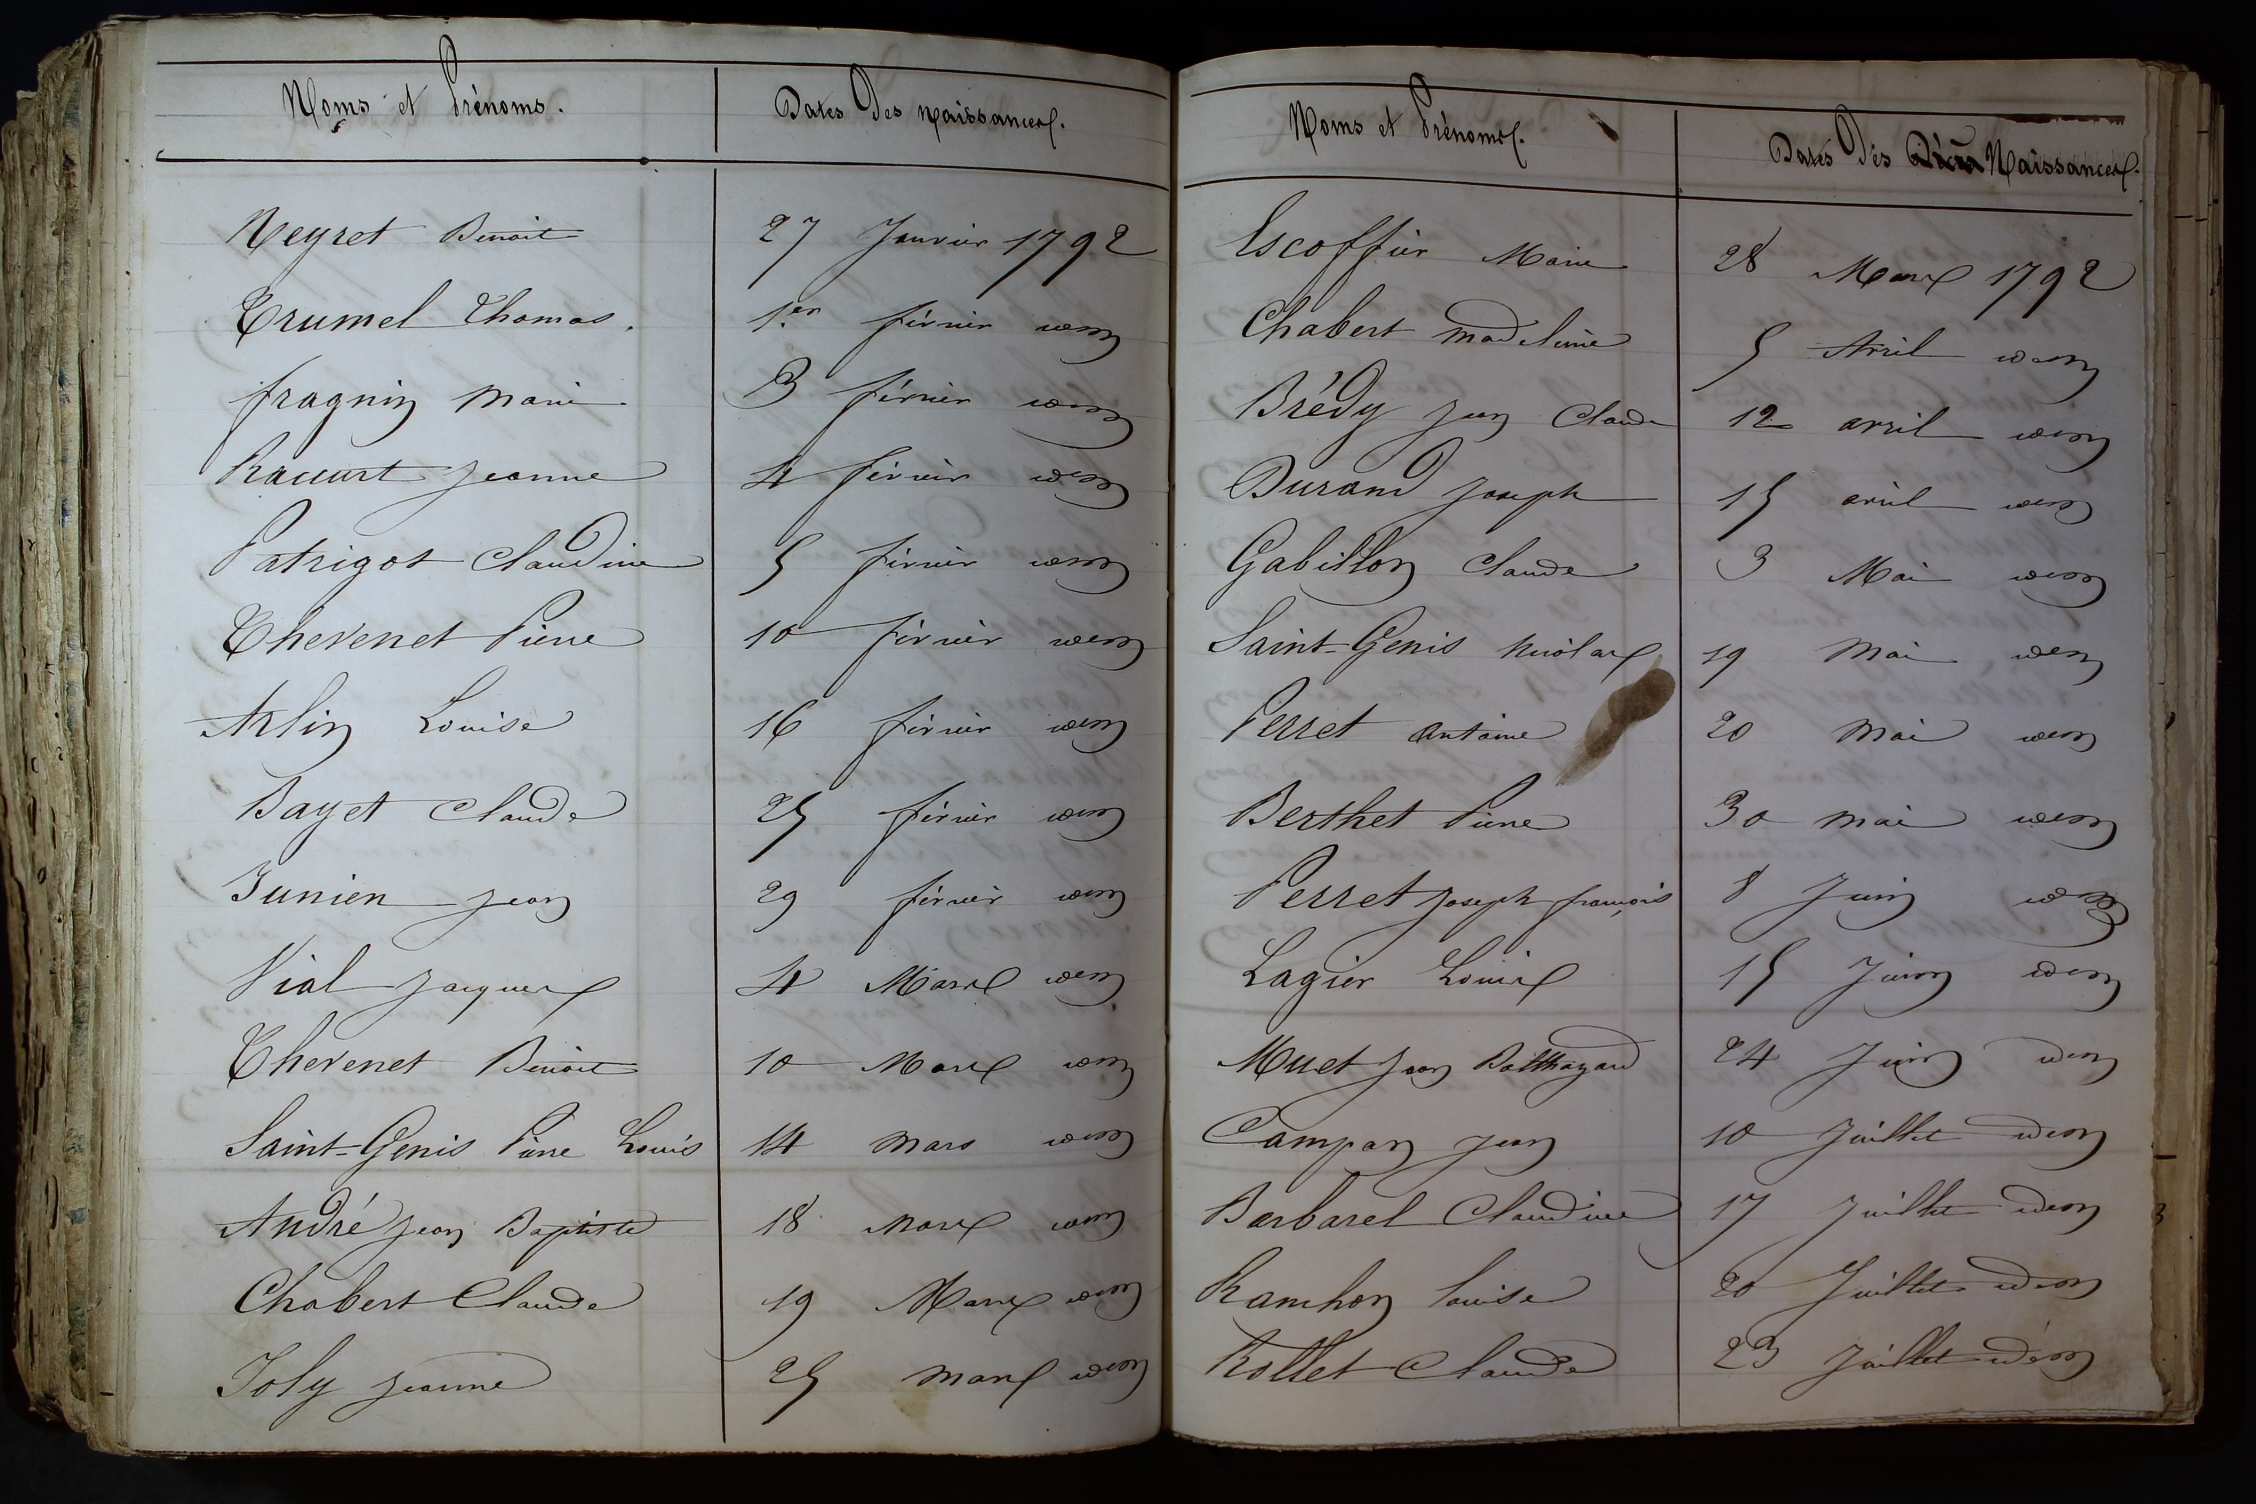 Noms et Prénoms.
Dates Des naissances.
Neyret Benoit 27 Janvier 1792
Trumel Thomas. 1.er février idem
fragnin Marie 3 février idem
Racurt Jeanne 4 février idem
Patrigot Claudine 5 février idem
Thevenet Pierre 10 février idem
Arlin Louise 16 février idem
Bayet Claude 25 février idem
Junien Jean 29 février idem
Vial Jacques 4 Mars idem
Thevenet Benoit 10 Mars idem
Saint-Genis Pierre Louis 14 mars idem
André Jean Baptiste 18 Mars idem
Chabert Claude 19 Mars idem
Joly Jeanne 25 mars idem
Noms et Prénoms.
Dates Des Naissances.
Escoffier Marie 28 Mars 1792
Chabert Madeleine 5 Avril idem
Brédy Jean Claude 12 avril idem
Durand Joseph 15 avril idem
Gabillon Claude 3 Mai idem
Saint-Genis Nicolas 19 Mai idem
Perret antoine 20 Mai idem
Berthet Pierre 30 mai idem
Perret Joseph françois 8 Juin idem
Lagier Louis 15 Juin idem
Muet Jean Balthazard 24 Juin idem
Campan Jean 10 Juillet idem
Barbarel Claudine 17 Juillet idem
Ranchon Louise 20 Juillet idem
Rollet Claude 23 Juillet idem